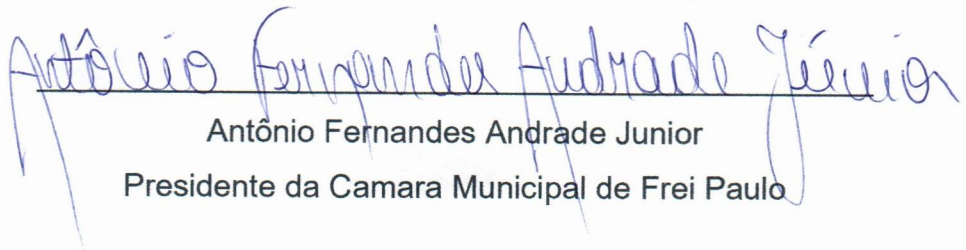 Antônio Fernandes Andrade Júnior
Antônio Fernandes Andrade Junior
Presidente da Camara Municipal de Frei Paulo